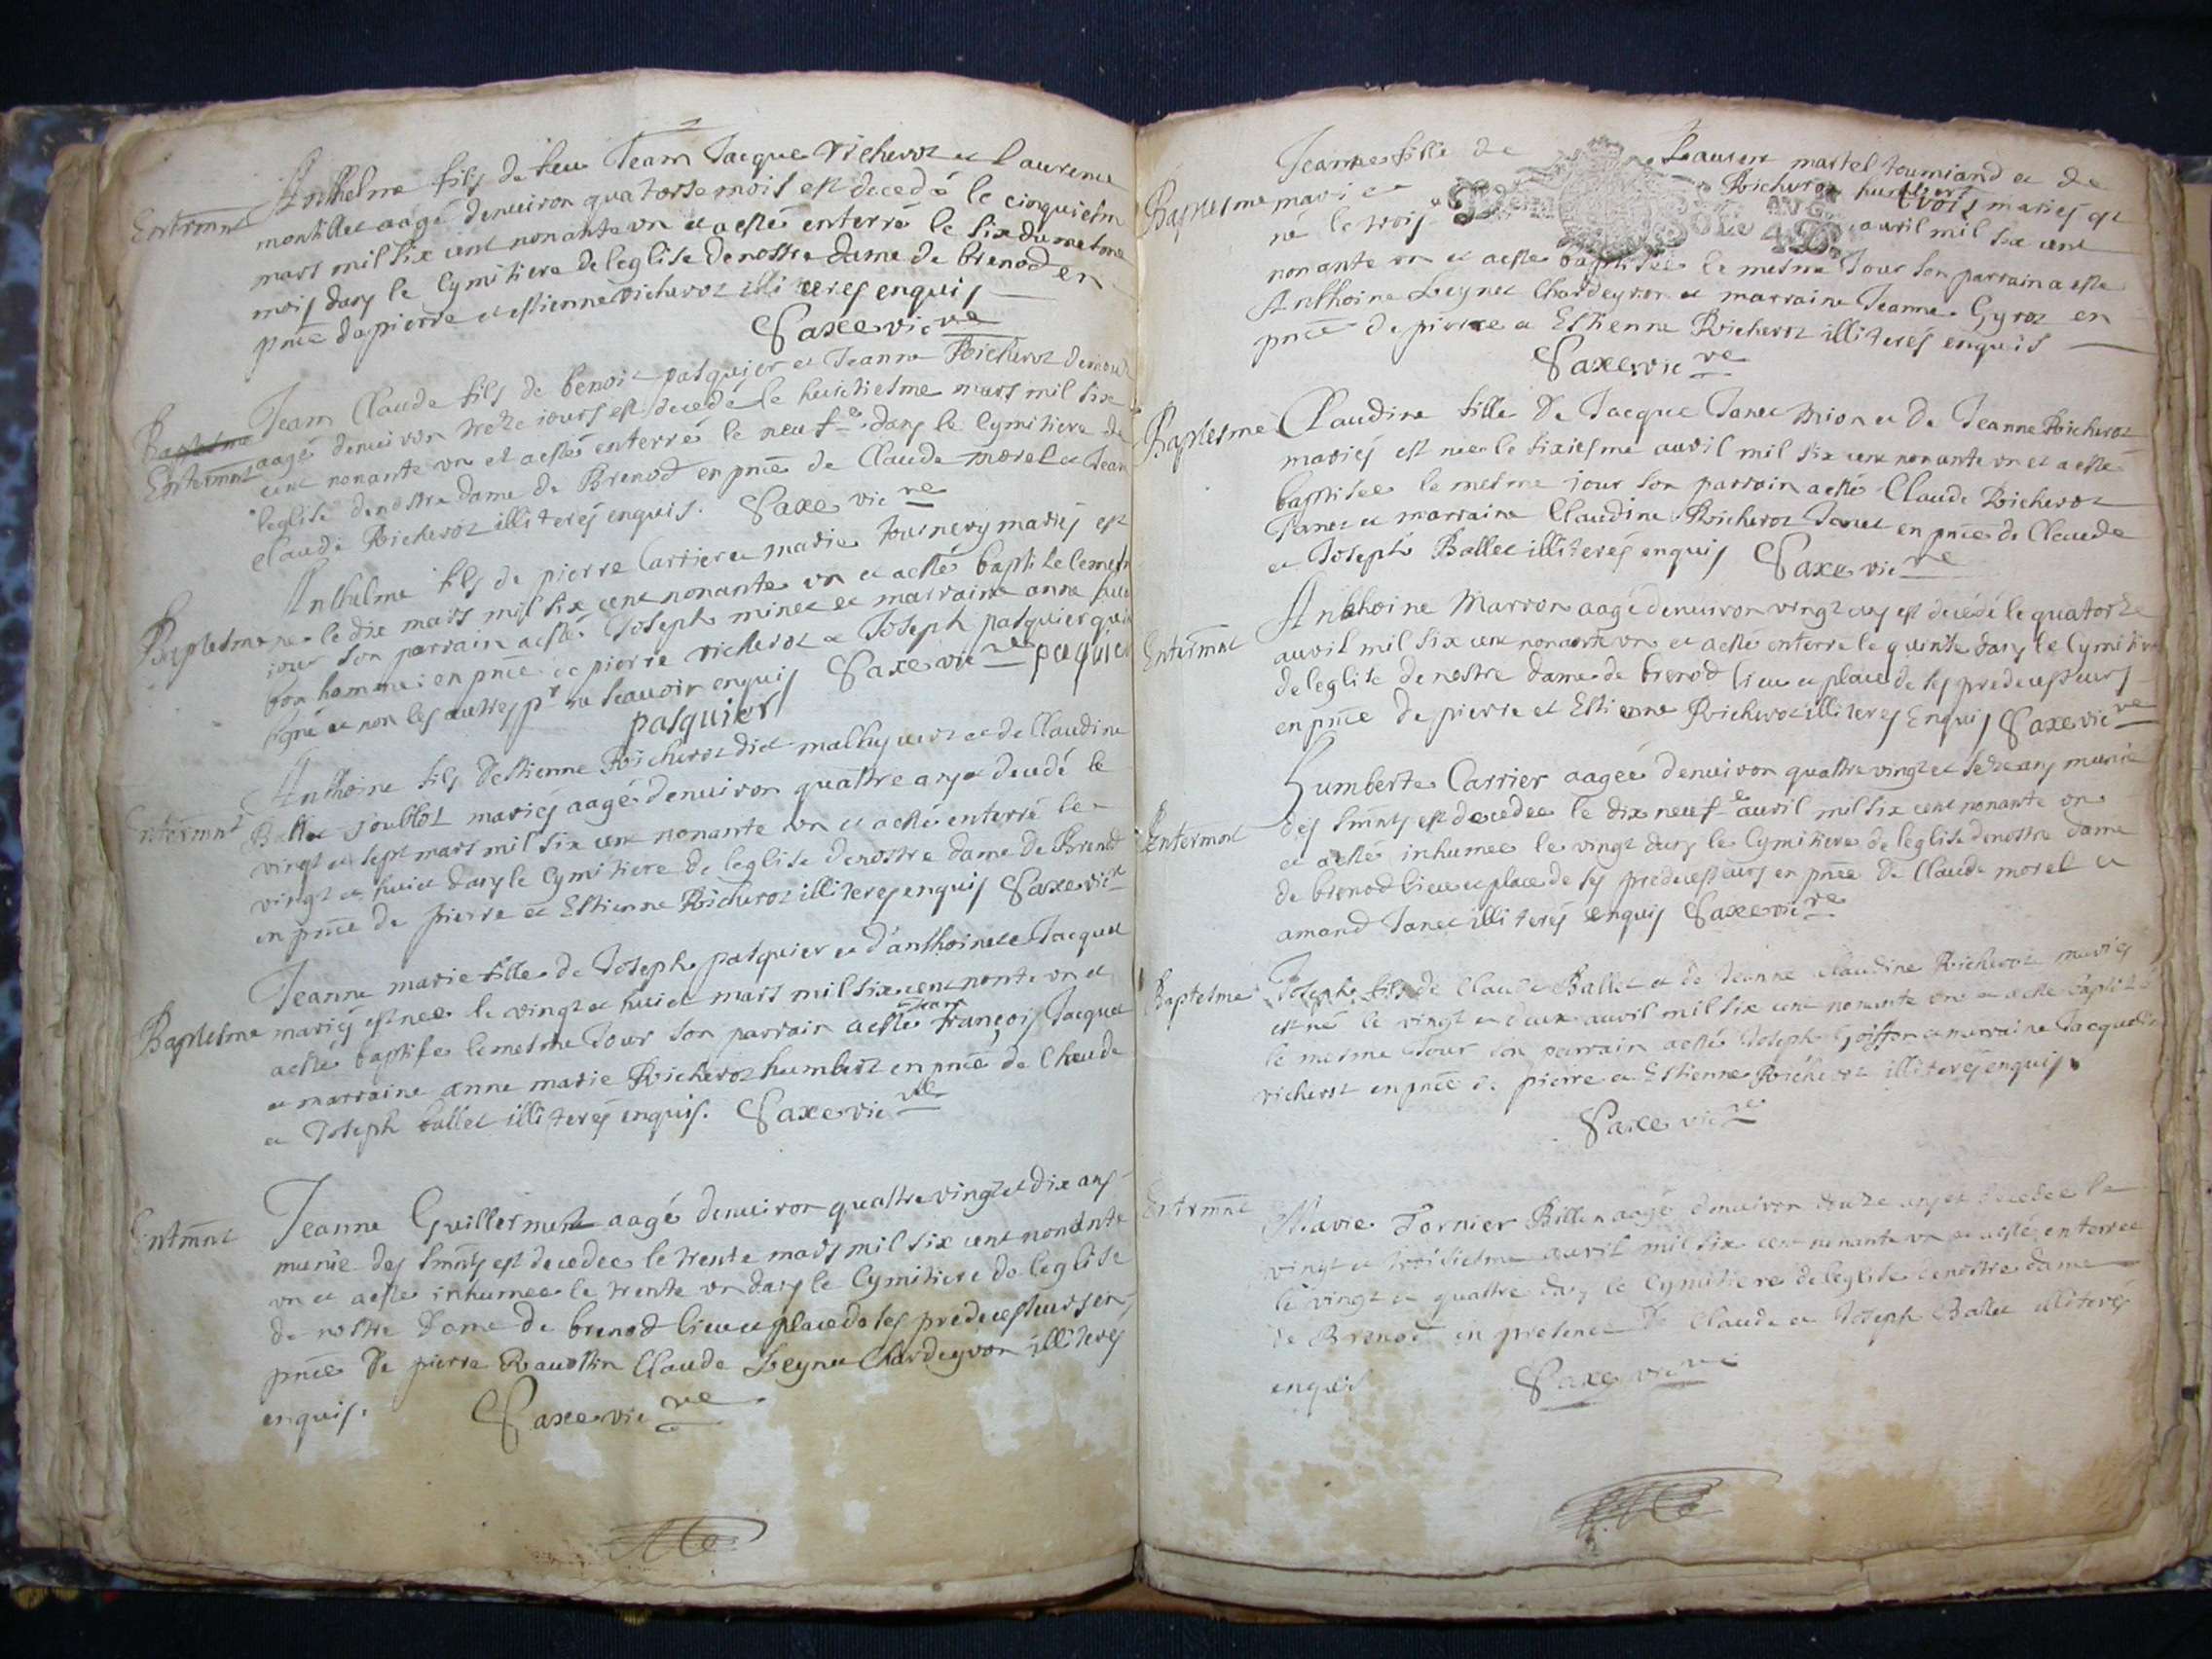 Anthelme fils de feu Jean Jacque Richerot et Laurence
Entermnt
montillet aagé denuiron quatorse mois est decedé le cinquiesm
mars mil six cent nonante un et a esté enterré le six du mesme
mois dans le Cymitiere de leglise de nostre dame de brenod en
pnce de pierre et estienne Richerot illiteres enquis
Saxe vicre
Jean Claude fils de benoit pasquier et Jeanne Richerot
Baptesme
Entermnt aagé denuiron treze iours est decedé le huictiesme mars mil six
cent nonante un et a esté enterré le neufe dans le Cymitiere de
leglise de nostre dame de Brenod en pnce de Claude morel et Jean
Claude Richerot illiterés enquis. Saxe vicre
Anthelme fils de pierre Carrier et marie tournery mariés est
Baptesme né le dix mars mil six cent nonante un et a esté baptise le mesm
iour son parrain a esté Joseph minet et marraine anne
bon homme en pnce de pierre richerot et Joseph pasquier qui a
signé et non les autres pr ne scauoir enquis Saxe vicre paquier
pasquier
Anthoine fils destienne Richerot dict et de Claudine
Entermnt Ballet Joublot mariés aagé denuiron quattre ans et decedé le
vingt et sept mars mil six cent nonante un et a esté enterré le
vingt et huict dans le Cymitiere de leglise de nostre dame de Brenod
en pnce de pierre et Estienne Richerot illiteres enquis Saxe vicre
Jeanne marie fille de Joseph pasquier et d'anthoinete Jacquet
Baptesme mariés est nee le vingt et huict mars mil six cent nonte un et
a esté baptisee le mesme Jour son parrain a esté Jean françois Jacquet
et marraine anne marie Richerot humbert en pnce de Claude
et Joseph ballet illiterés enquis. Saxe vicre
Entmnt
Jeanne Guillermet aagé denuiron quattre vingt et dix ans
munie des Smnts est decedee le trente mars mil six cent nonante
un et a esté inhumee le trente un dans le Cymitiere de leglise
de nostre Dame de brenod lieu et place de ses predecesseurs en
pnce de pierre Rauostin Claude Leynet Chardeyron illiterés
enquis. Saxe vicre
Jeanne fille de Laurent martel tourniand et de
Baptesme marie Richerot mariés est
né le trois auril mil six cent
nonante un et a esté baptisée le mesme Jour son parrain a esté
Anthoine Leynet Chardeyron et marraine Jeanne Gyrot en
pnce de pierre et Estienne Richerot illiterés enquis
Saxe vicre
Baptesme Claudine fille de Jacque Janet mion et de Jeanne Richerot
mariés est nee le sixiesme auril mil six cent nonante un et a esté
baptisee le mesme iour son parrain a esté Claude Richerot
Janet et marraine Claudine Richerot Janet en pnce de Claude
et Joseph Ballet illiterés enquis Saxe vicre
Anthoine Marron aagé denuiron vingt ans est decedé le quatorze
Entermnt auril mil six cent nonante un et a esté enterré le quinze dans le Cymitiere
de leglise de nostre dame de brenod lieu et place de ses predecesseurs
en pnce de pierre et Estienne Richerot illiteres Enquis Saxe vicre
Humberte Carrier aagee denuiron quattre vingt et seze ans munie
Entermnt des Smnts est decedee le dix neufe auril mil six cent nonante un
et a esté inhumee le vingt dans le Cymitiere de leglise de nostre dame
de brenod lieu et place de ses predecesseurs en pnce de Claude morel et
amand Janet illiterés enquis Saxe vicre
Baptesme Joseph fils de Claude Ballet et de Jeanne Claudine Richerot mariés
est né le vingt et deux auril mil six cent nonante un et a esté baptisé
le mesme Jour son parrain a esté Joseph Goiffon et marraine Jacqueline
richerot en pnce de pierre et Estienne Richerot illiterés enquis.
Saxe vicre
Entermnt Marie Tornier Billen aagé denuiron douze ans est decedee le
vingt et troisiesme auril mil six cent nonante un et a esté enterree
le vingt et quattre dans le Cymitiere de leglise de nostre dame
de Brenod en presence de Claude et Joseph Ballet illiterés
enquis Saxe vicre